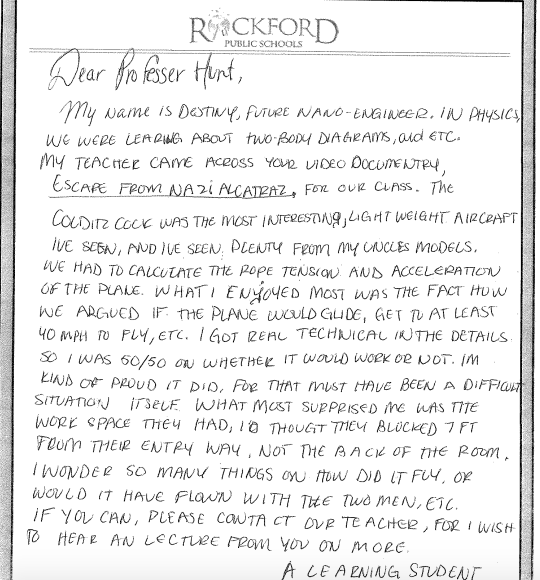 ROCKFORD
PUBLIC SCHOOLS
Dear Professer Hunt,
MY NAME IS DESTINY, FUTURE NANO-ENGINEER. IN PHYSICS,
WE WERE LEARING ABOUT TWO-BODY DIAGRAMS, and ETC.
MY TEACHER CAME ACROSS YOUR VIDEO DOCUMENTRY,
ESCAPE FROM NAZI ALCATRAZ, FOR OUR CLASS. THE
COLDITZ COCK WAS THE MOST INTERESTING, LIGHT WEIGHT AIRCRAFT
IVE SEEN, AND IVE SEEN PLENTY FROM MY UNCLES MODELS.
WE HAD TO CALCULATE THE ROPE TENSION AND ACCELERATION
OF THE PLANE. WHAT I ENJOYED MOST WAS THE FACT HOW
WE ARGUED IF THE PLANE WOULD GLIDE, GET TO AT LEAST
40 MPH TO FLY, ETC. I GOT REAL TECHNICAL IN THE DETAILS
SO I WAS 50/50 ON WHETHER IT WOULD WORK OR NOT. IM
KIND OF PROUD IT DID, FOR THAT MUST HAVE BEEN A DIFFICULT
SITUATION ITSELF. WHAT MOST SURPRISED ME WAS THE
WORK SPACE THEY HAD, I'D THOUGT THEY BLOCKED 7 FT
FROM THEIR ENTRY WAY, NOT THE BACK OF THE ROOM.
I WONDER SO MANY THINGS ON HOW DID IT FLY, OR
WOULD IT HAVE FLOWN WITH THE TWO MEN, ETC.
IF YOU CAN, PLEASE CONTACT OUR TEACHER, FOR I WISH
TO HEAR AN LECTURE FROM YOU ON MORE.
A LEARNING STUDENT